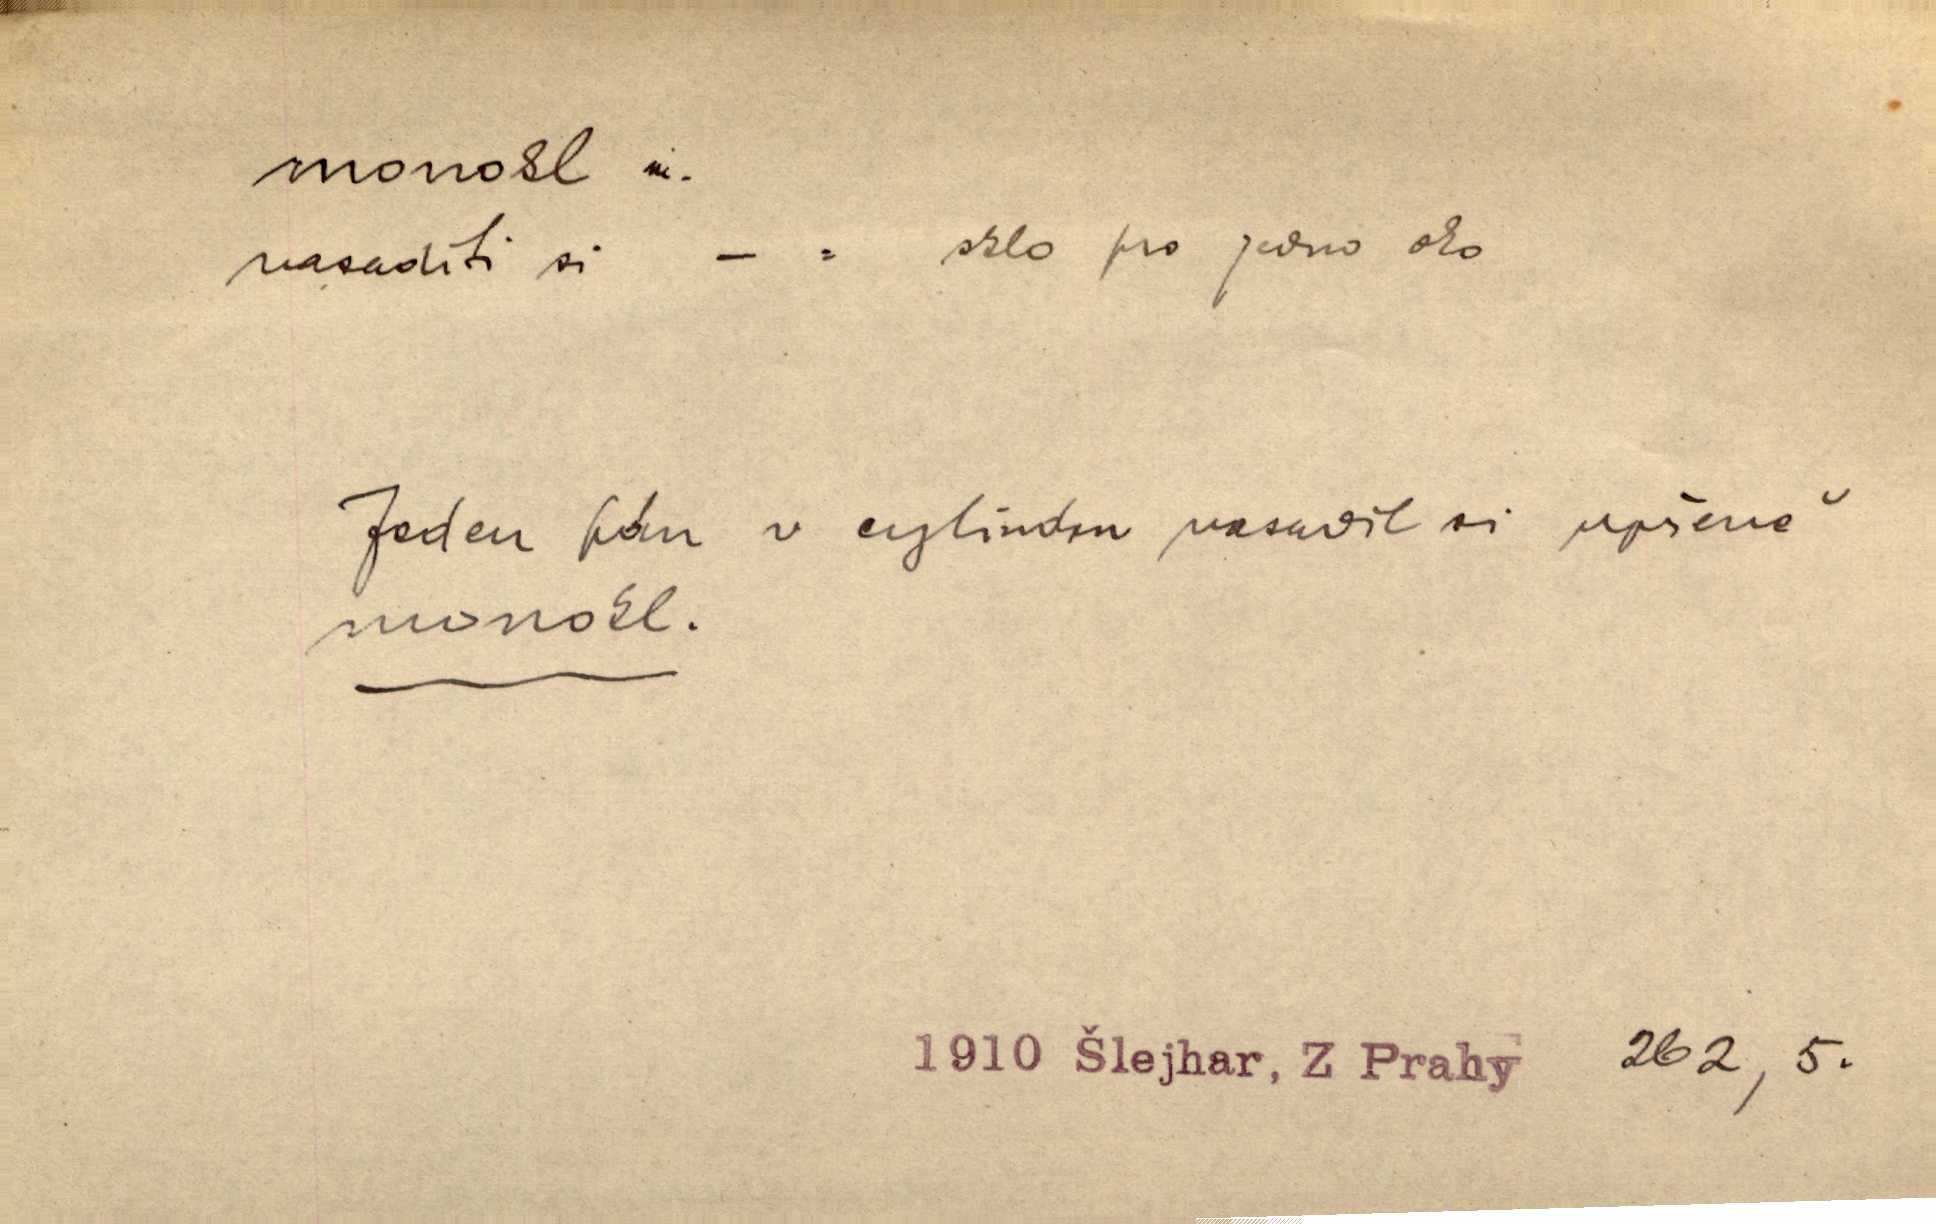 monokl m.
nasaditi si — = sklo pro jedno oko
Jeden pán v cylindru nasadil si upřeně
monokl.
1910 Šlejhar, Z Prahy 262, 5.